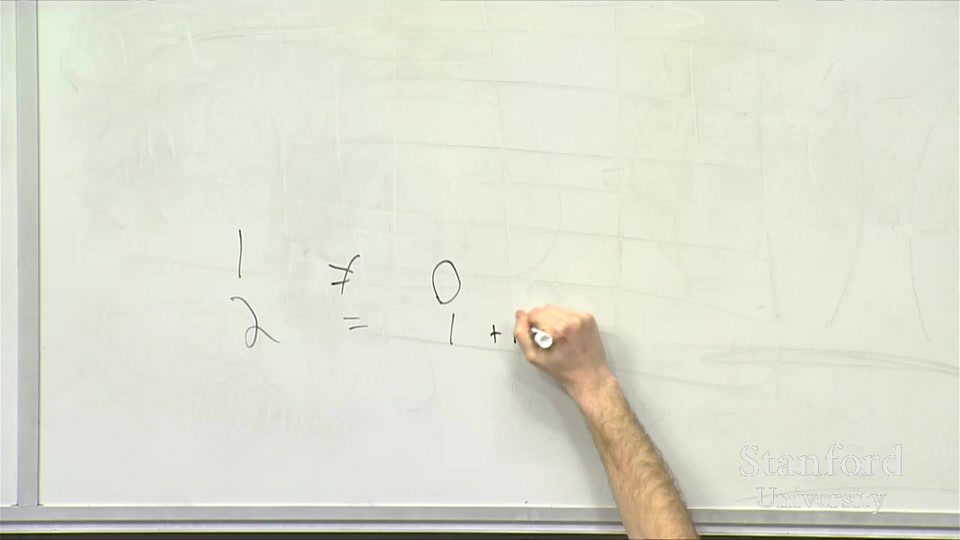 1 ≠ 0
2 = 1 +
Stanford
University